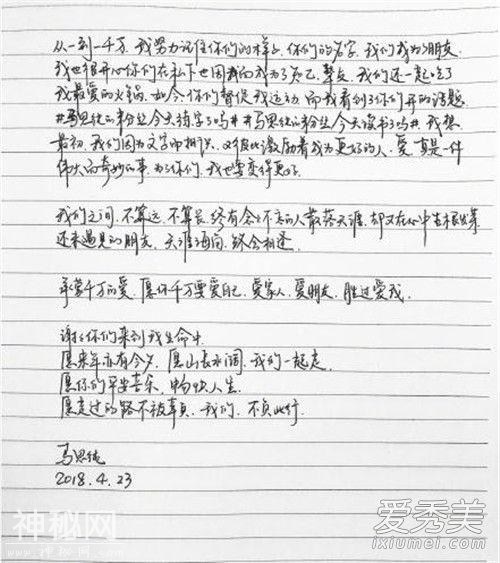 从一到一千万，我努力记住你们的样子，你们的名字，我们成为朋友，
我也很开心你们在私下也因我而成为了知己、挚友，我们还一起吃了
我最爱的火锅。如今，你们督促我运动，而我看到了你们开的话题
#马思纯的粉丝今天练字了吗##马思纯的粉丝今天读书了吗#，我想
最初，我们因为文字而相识，又彼此激励着成为更好的人，爱，真是一件
伟大而奇妙的事，为了你们，我也要变得更好。
我们之间，不算远，不算长，终有念念不忘的人散落天涯，却又在心中
还未遇见的朋友，天涯海角，终会相逢
承蒙千万的爱，愿你千万要爱自己，爱家人，爱朋友，胜过爱我。
谢谢你们来到我生命中
愿来年亦有今夕，愿山长水阔，我们一起走，
愿你们的早安喜乐，快人生，
愿走过的路不被辜负，我们，不负此行。
马思纯
2018.4.23
神秘网
WWW.
爱秀美
ixiumei.com